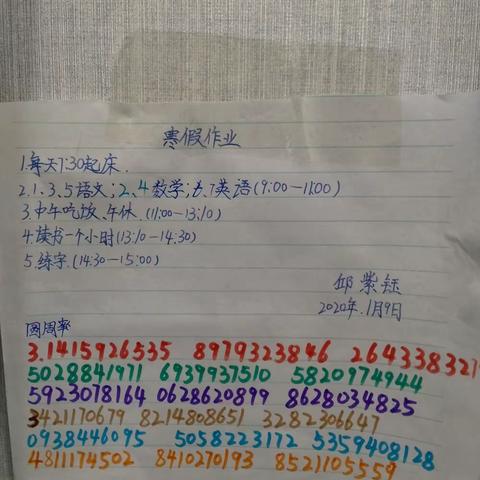 寒假作业
1.每天7:30起床.
2.1.3.5语文;2、4数学;6、7英语(9:00-11:00)
3.中午吃饭、午休.(11:00-13:10)
4.读书一个小时(13:10-14:30)
5.练字.(14:30-15:00)
邱紫钰
2020年.1月9日
圆周率
3.1415926535 8979323846 2643383279
5028841971 6939937510 5820974944
5923078164 0628620899 8628034825
3421170679 8214808651 3282306647
0938446095 5058223172 5359408128
4811174502 8410270193 8521105559